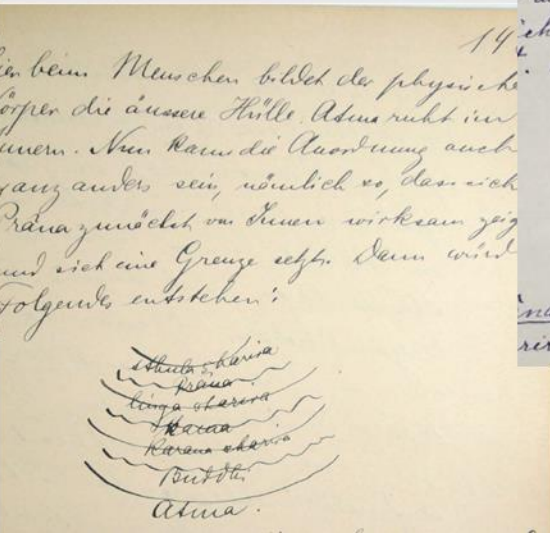 14
ier beim Menschen bildet der physische
örper die äussere Hülle. Atma ruht im
nnern. Nun kann die Anordnung auch
ganz anders sein, nämlich so, dass sich
Prâna zunächst von Innen wirksam zeig
und sich eine Grenze setzt. Dann würd
Folgendes entstehen:
sthula sharira
Prâna
linga sharira
Kama
Karana sharira
Buddhi
Atma.